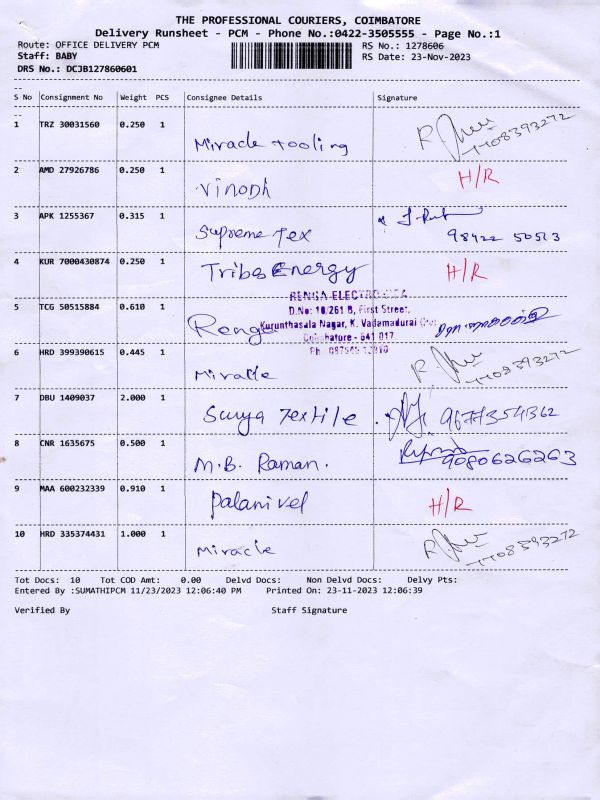 THE PROFESSIONAL COURIERS, COIMBATORE
Delivery Runsheet - PCM - Phone No.:0422-3505555 - Page No.:1
Route: OFFICE DELIVERY PCM RS No.: 1278606
Staff: BABY RS Date: 23-Nov-2023
DRS No.: DCJB127860601
S No Consignment No Weight PCS Consignee Details Signature
1 TRZ 30031560 0.250 1 Miracle tooling
2 AMD 27926786 0.250 1 Vinodh H/R
3 APK 1255367 0.315 1 Supreme Tex
98422 50513
4 KUR 7000430874 0.250 1 Tribes Energy H/R
RENGA ELECTRO
D.No: 10/261 B, First Street,
Kurunthasala Nagar, K. Vadamadurai
Coimbatore - 641 017
5 TCG 50515884 0.610 1 Renga
6 HRD 399390615 0.445 1 Miracle
7 DBU 1409037 2.000 1 Surya Textile 9677354362
8 CNR 1635675 0.500 1 M.B. Raman. 9080626263
9 MAA 600232339 0.910 1 Palanivel H/R
10 HRD 335374431 1.000 1 Miracle
Tot Docs: 10 Tot COD Amt: 0.00 Delvd Docs: Non Delvd Docs: Delvy Pts:
Entered By :SUMATHIPCM 11/23/2023 12:06:40 PM Printed On: 23-11-2023 12:06:39
Verified By Staff Signature